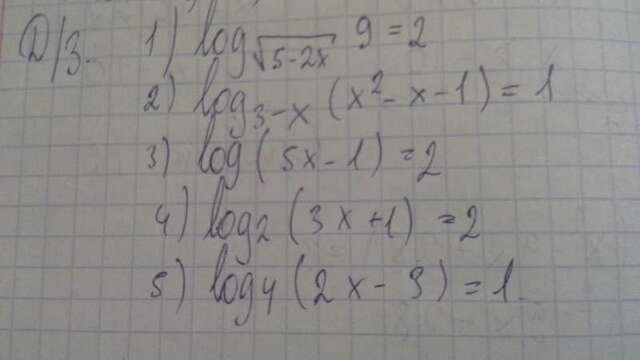 Д/З. 1) log√(5-2x) 9 = 2
2) log₃₋ₓ (x² - x - 1) = 1
3) log (5x - 1) = 2
4) log₂ (3x + 1) = 2
5) log₄ (2x - 3) = 1.